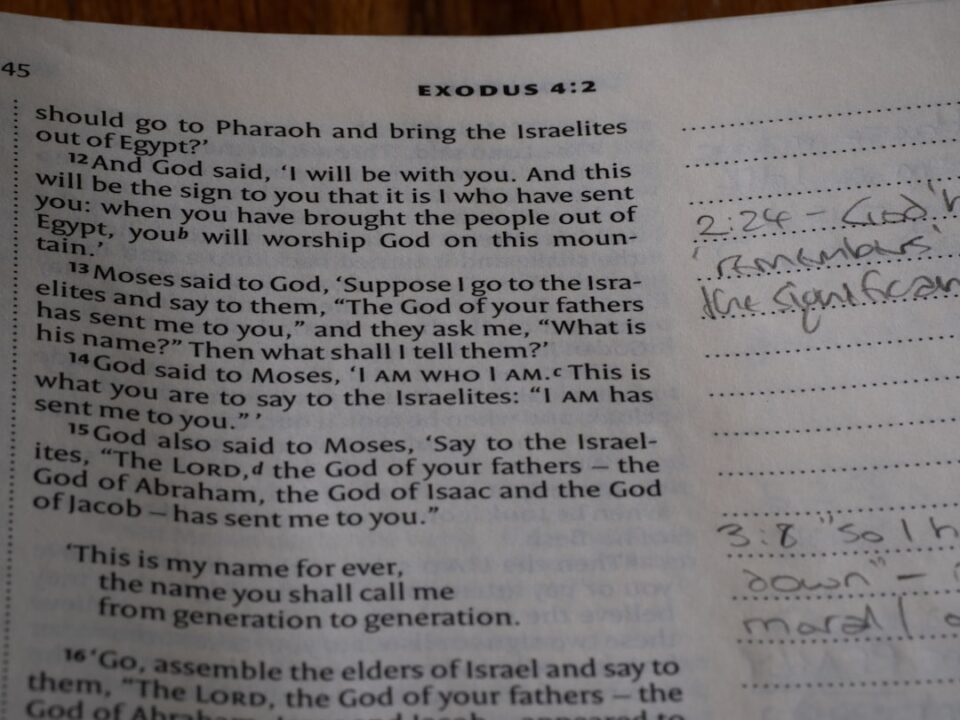 45
EXODUS 4:2
should go to Pharaoh and bring the Israelites
out of Egypt?’
12 And God said, ‘I will be with you. And this
will be the sign to you that it is I who have sent
you: when you have brought the people out of
Egypt, youb will worship God on this moun-
tain.’
13 Moses said to God, ‘Suppose I go to the Isra-
elites and say to them, “The God of your fathers
has sent me to you,” and they ask me, “What is
his name?” Then what shall I tell them?’
14 God said to Moses, ‘I AM WHO I AM.c This is
what you are to say to the Israelites: “I AM has
sent me to you.” ’
15 God also said to Moses, ‘Say to the Israel-
ites, “The LORD,d the God of your fathers – the
God of Abraham, the God of Isaac and the God
of Jacob – has sent me to you.”
‘This is my name for ever,
the name you shall call me
from generation to generation.
16 ‘Go, assemble the elders of Israel and say to
them, “The LORD, the God of your fathers – the
God of Abraham, Isaac and Jacob – appeared to
2:24 – God
‘remembers’
the
3:8 "So I
down" –
moral